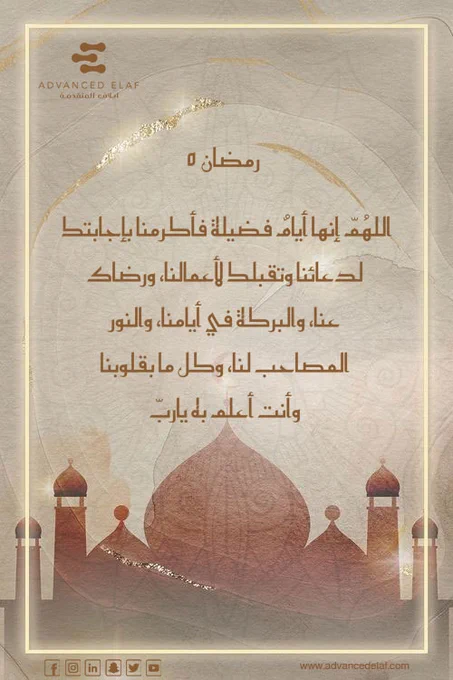 ADVANCED ELAF
ايلاف المتقدمة
رمضان ٥
اللهُمّ إنها أيامُ فضيلة فأكرمنا بإجابتك
لدعائنا وتقبلك لأعمالنا، ورضاك
عنا، والبركة في أيامنا، والنور
المصاحب لنا، وكل ما بقلوبنا
وأنت أعلم به ياربّ
www.advancedelaf.com